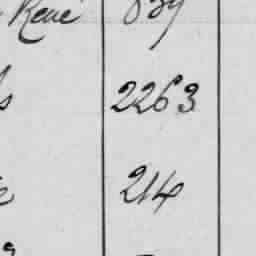 René 839
2263
214